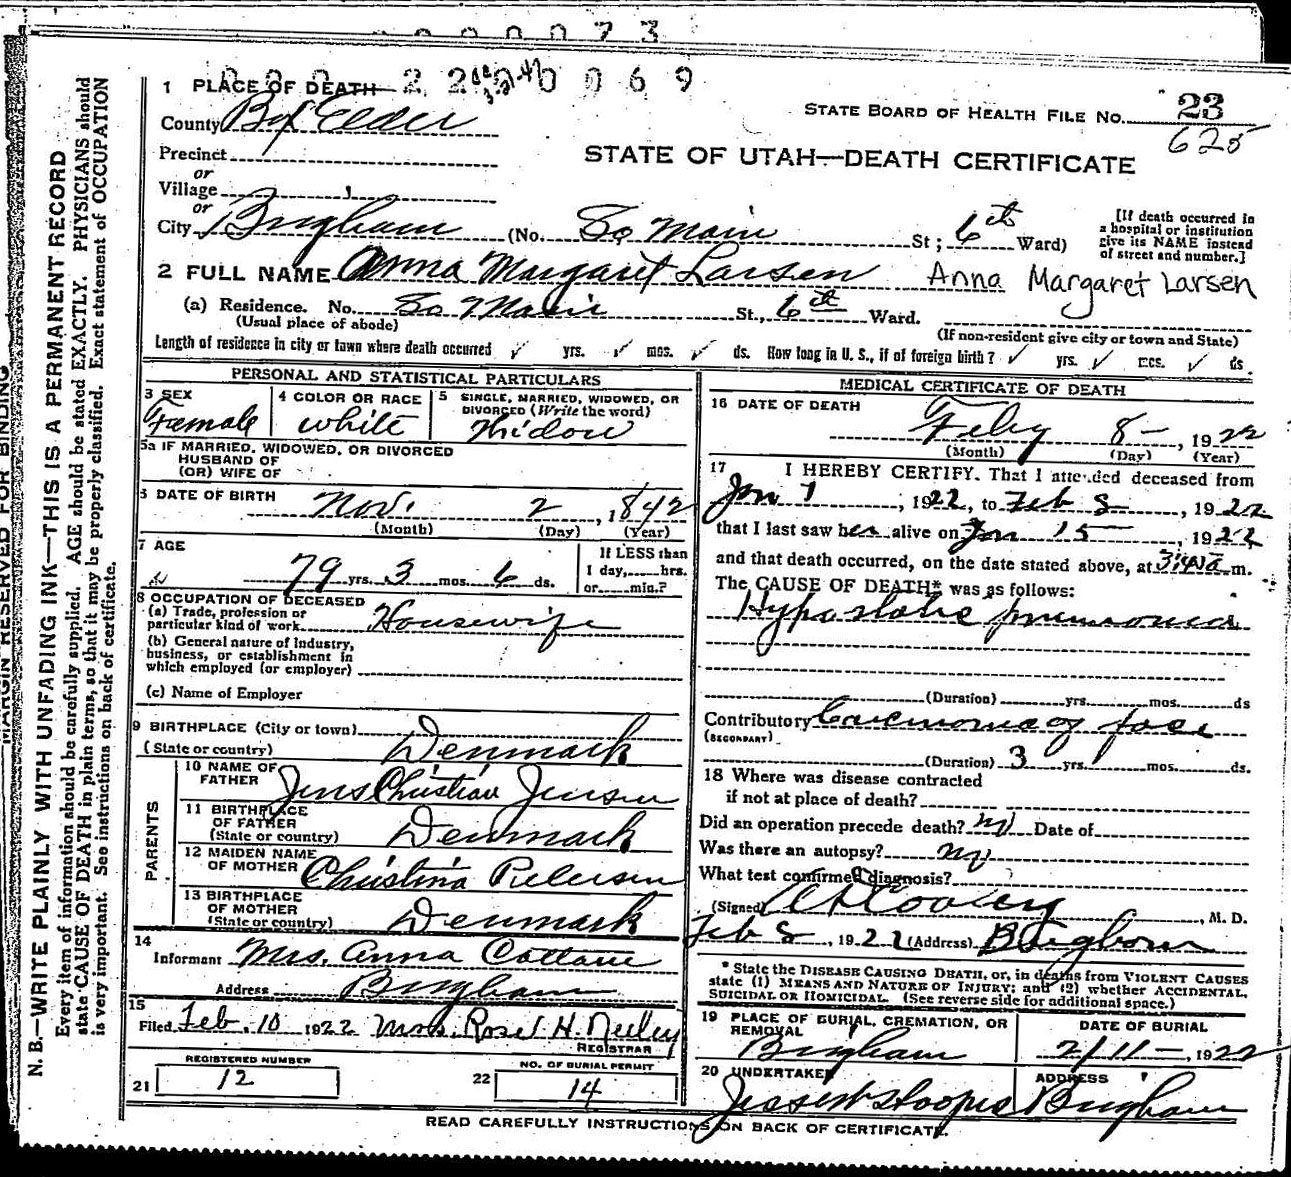 000073
2200069
1 PLACE OF DEATH
County Box Elder
STATE BOARD OF HEALTH FILE NO. 23
625
Precinct
STATE OF UTAH—DEATH CERTIFICATE
or
Village
or
City Brigham (No. So Main St; 6th Ward)
[If death occurred in
a hospital or institution
give its NAME instead
of street and number.]
2 FULL NAME Anna Margaret Larsen Anna Margaret Larsen
(a) Residence. No. So Main St., 6th Ward.
(Usual place of abode) (If non-resident give city or town and State)
Length of residence in city or town where death occurred yrs. mos. ds. How long in U. S., if of foreign birth? yrs. mos. ds.
PERSONAL AND STATISTICAL PARTICULARS
3 SEX Female
4 COLOR OR RACE white
5 SINGLE, MARRIED, WIDOWED, OR
DIVORCED (Write the word)
Widow
5a IF MARRIED, WIDOWED, OR DIVORCED
HUSBAND OF
(OR) WIFE OF
6 DATE OF BIRTH Nov. 2, 1842
(Month) (Day) (Year)
7 AGE 79 yrs. 3 mos. 6 ds.
If LESS than
1 day, hrs.
or min.?
8 OCCUPATION OF DECEASED
(a) Trade, profession or
particular kind of work Housewife
(b) General nature of industry,
business, or establishment in
which employed (or employer)
(c) Name of Employer
9 BIRTHPLACE (City or town)
(State or country) Denmark
PARENTS
10 NAME OF
FATHER Jens Christian Jensen
11 BIRTHPLACE
OF FATHER
(State or country) Denmark
12 MAIDEN NAME
OF MOTHER Christina Petersen
13 BIRTHPLACE
OF MOTHER
(State or country) Denmark
14
Informant Mrs. Anna
Address Brigham
15
Filed Feb. 10 1922 Mrs. Rose H. Neeley
REGISTRAR
REGISTERED NUMBER
21 12
NO. OF BURIAL PERMIT
22 14
MEDICAL CERTIFICATE OF DEATH
16 DATE OF DEATH
Feby 8—, 1922
(Month) (Day) (Year)
17 I HEREBY CERTIFY. That I attended deceased from
Jan 1, 1922, to Feb 8, 1922
that I last saw her alive on Jan 15, 1922
and that death occurred, on the date stated above, at m.
The CAUSE OF DEATH* was as follows:
Hypostatic pneumonia
(Duration) yrs. mos. ds
Contributory Carcinoma of face
(SECONDARY)
(Duration) 3 yrs. mos. ds.
18 Where was disease contracted
if not at place of death?
Did an operation precede death? no Date of
Was there an autopsy? no
What test confirmed diagnosis?
(Signed) , M. D.
Feb 8, 1922 (Address) Brigham
* State the DISEASE CAUSING DEATH, or, in deaths from VIOLENT CAUSES
state (1) MEANS AND NATURE OF INJURY; and (2) whether ACCIDENTAL,
SUICIDAL or HOMICIDAL. (See reverse side for additional space.)
19 PLACE OF BURIAL, CREMATION, OR
REMOVAL
Brigham
DATE OF BURIAL
2/11—, 1922
20 UNDERTAKER
ADDRESS
Brigham
READ CAREFULLY INSTRUCTIONS ON BACK OF CERTIFICATE.
MARGIN RESERVED FOR BINDING
N. B.—WRITE PLAINLY WITH UNFADING INK—THIS IS A PERMANENT RECORD
Every item of information should be carefully supplied. AGE should be stated EXACTLY. PHYSICIANS should
state CAUSE OF DEATH in plain terms, so that it may be properly classified. Exact statement of OCCUPATION
is very important. See instructions on back of certificate.